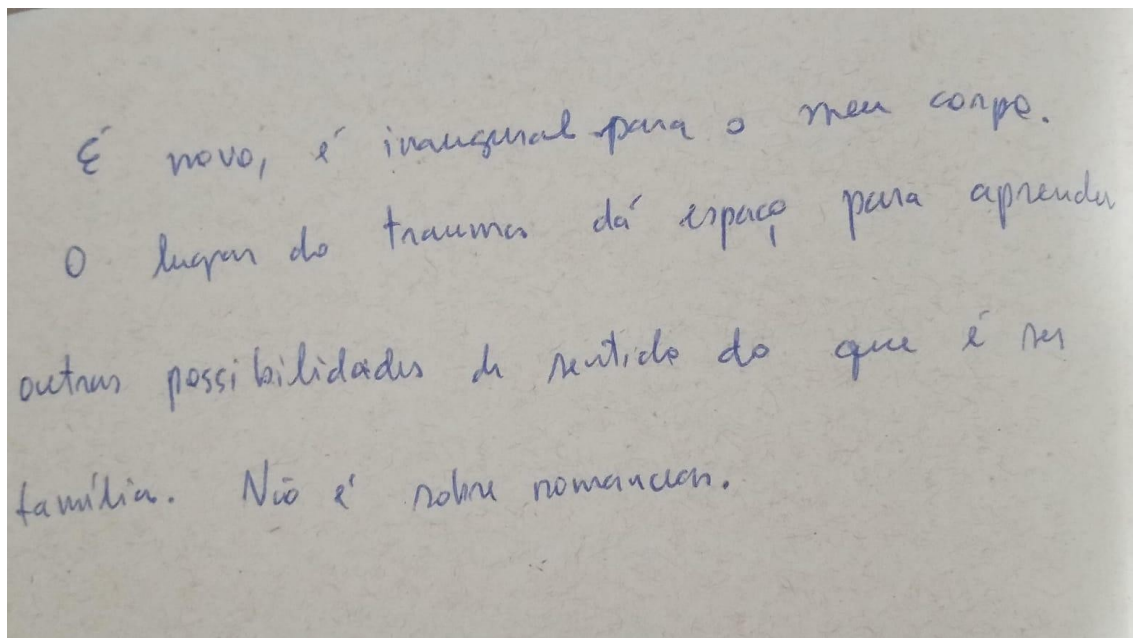 É novo, é inaugural para o meu corpo.
O lugar do trauma dá espaço para aprender
outras possibilidades de sentido do que é ser
família. Não é sobre romancear.